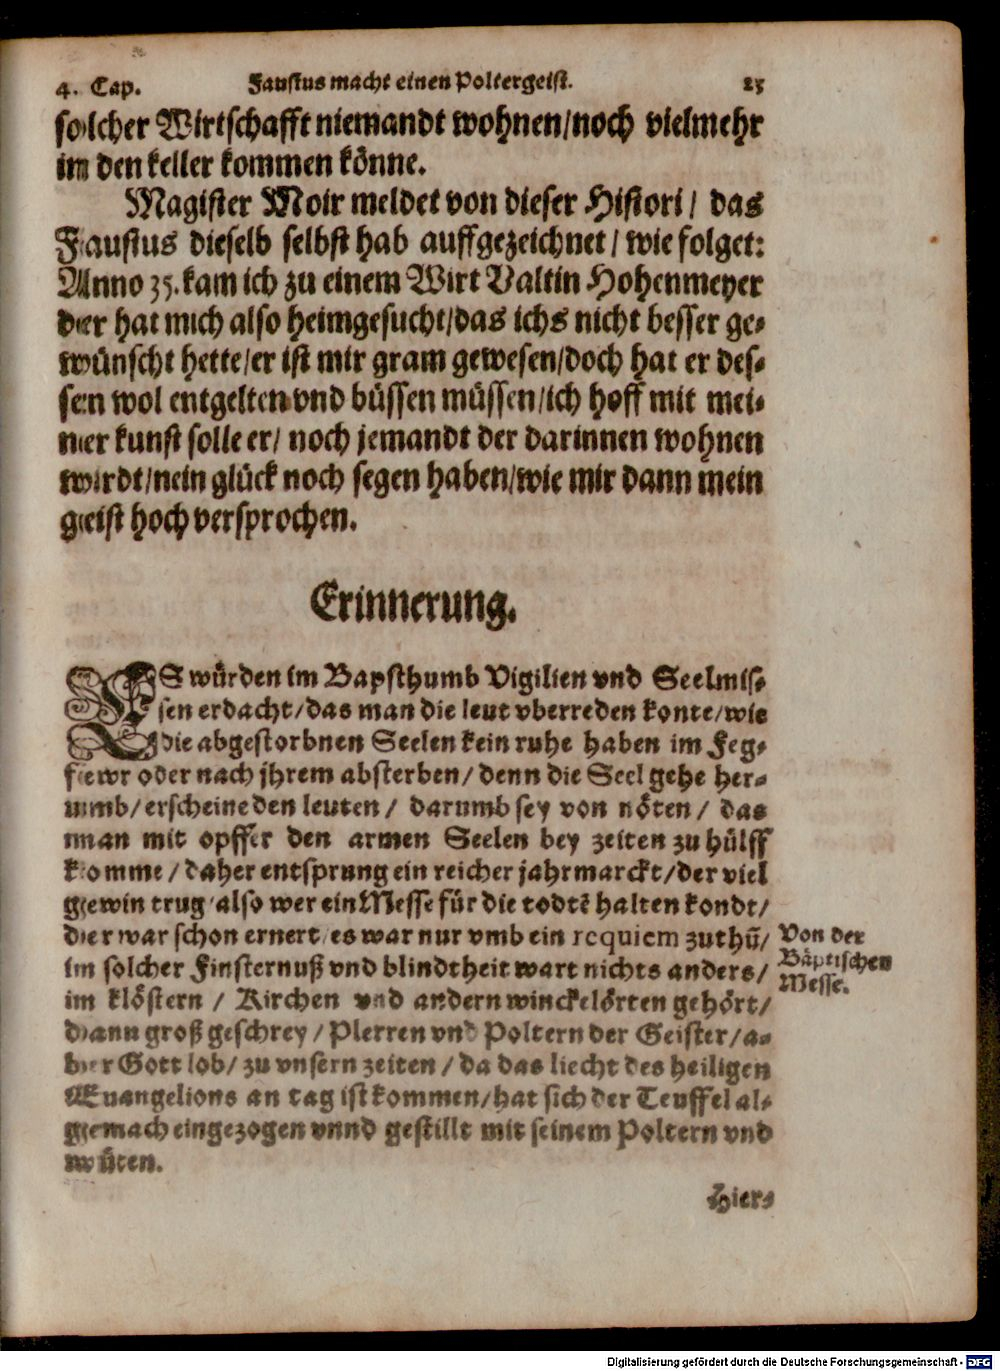 4. Cap. Faustus macht einen Poltergeist. 25
solcher Wirtschafft niemandt wohnen/noch vielmehr
im den keller kommen könne.
Magister Moir meldet von dieser Histori/ das
Faustus dieselb selbst hab auffgezeichnet/ wie folget:
Anno 35. kam ich zu einem Wirt Valtin Hohenmeyer
der hat mich also heimgesucht/das ichs nicht besser ge-
wünscht hette/er ist mir gram gewesen/doch hat er des-
sen wol entgelten vnd büssen müssen/ich hoff mit mei-
ner kunst solle er/ noch jemandt der darinnen wohnen
wirdt/nein glück noch segen haben/wie mir dann mein
geist hoch versprochen.
Erinnerung.
ES würden im Bapsthumb Vigilien vnd Seelmis-
sen erdacht/das man die leut vberreden konte/wie
die abgestorbnen Seelen kein ruhe haben im Feg-
fewr oder nach jhrem absterben/ denn die Seel gehe her-
umb/ erscheine den leuten/ darumb sey von nöten/ das
man mit opffer den armen Seelen bey zeiten zu hülff
komme/ daher entsprung ein reicher jahrmarckt/der viel
gewin trug/also wer ein Messe für die todtē halten kondt/
der war schon ernert/es war nur vmb ein requiem zuthū/
im solcher Finsternuß vnd blindtheit wart nichts anders/
im klöstern / Kirchen vnd andern winckelörten gehört/
dann groß geschrey/ Plerren vnd Poltern der Geister/a-
ber Gott lob/ zu vnsern zeiten / da das liecht des heiligen
Euangelions an tag ist kommen/hat sich der Teuffel al-
gemach eingezogen vnnd gestillt mit seinem Poltern vnd
wüten.
Von der
Bäptischen
Messe.
Hier-
Digitalisierung gefördert durch die Deutsche Forschungsgemeinschaft - DFG